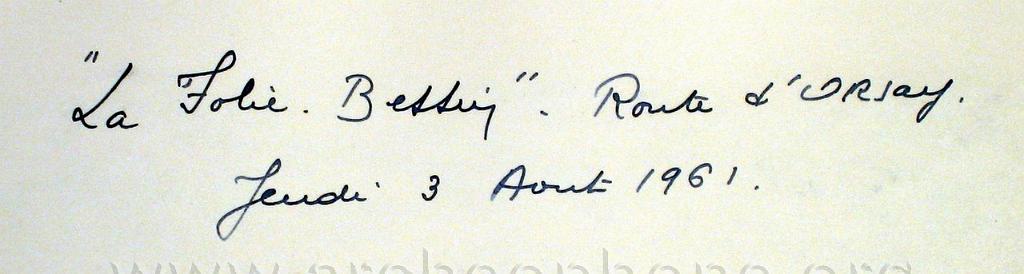 "La Folie. Bessin". Route d'ORSay.
Jeudi 3 Aout 1961.